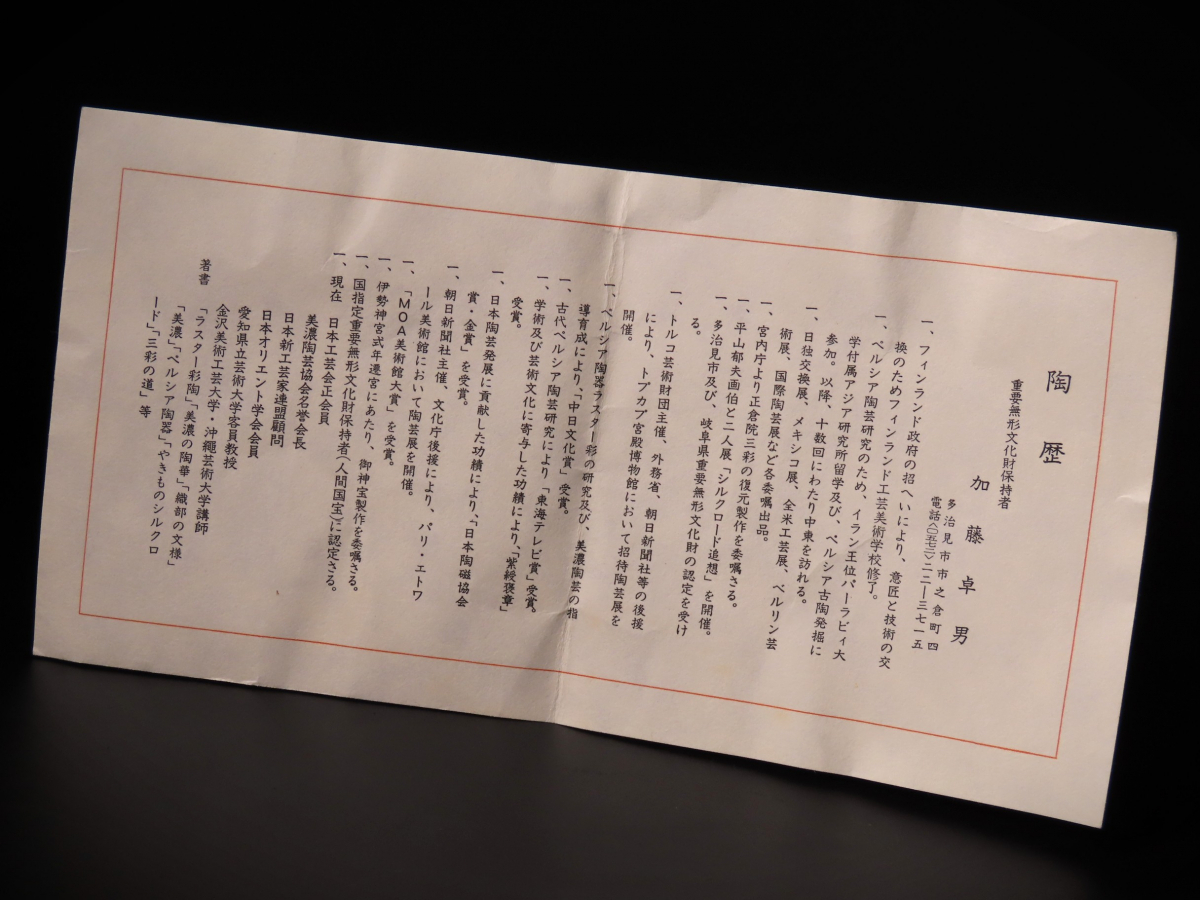 陶歴
重要無形文化財保持者
加藤卓男
多治見市市之倉町四
電話〈〇五七二〉二二―三七一五
一、フィンランド政府の招へいにより、意匠と技術の交
換のためフィンランド工芸美術学校修了。
一、ペルシア陶芸研究のため、イラン王位パーラビィ大
学付属アジア研究所留学及び、ペルシア古陶発掘に
参加。以降、十数回にわたり中東を訪れる。
一、日独交換展、メキシコ展、全米工芸展、ベルリン芸
術展、国際陶芸展など各委嘱出品。
一、宮内庁より正倉院三彩の復元製作を委嘱さる。
一、平山郁夫画伯と二人展「シルクロード追想」を開催。
一、多治見市及び、岐阜県重要無形文化財の認定を受け
る。
一、トルコ芸術財団主催、外務省、朝日新聞社等の後援
により、トプカプ宮殿博物館において招待陶芸展を
開催。
一、ペルシア陶器ラスター彩の研究及び、美濃陶芸の指
導育成により、「中日文化賞」受賞。
一、古代ペルシア陶芸研究により「東海テレビ賞」受賞。
一、学術及び芸術文化に寄与した功績により、「紫綬褒章」
受賞。
一、日本陶芸発展に貢献した功績により、「日本陶磁協会
賞・金賞」を受賞。
一、朝日新聞社主催、文化庁後援により、パリ・エトワ
ール美術館において陶芸展を開催。
一、「MOA美術館大賞」を受賞。
一、伊勢神宮式年遷宮にあたり、御神宝製作を委嘱さる。
一、国指定重要無形文化財保持者(人間国宝)に認定さる。
一、現在 日本工芸会正会員
美濃陶芸協会名誉会長
日本新工芸家連盟顧問
日本オリエント学会会員
愛知県立芸術大学客員教授
金沢美術工芸大学・沖縄芸術大学講師
著書 「ラスター彩陶」「美濃の陶華」「織部の文様」
「美濃」「ペルシア陶器」「やきものシルクロ
ード」「三彩の道」等